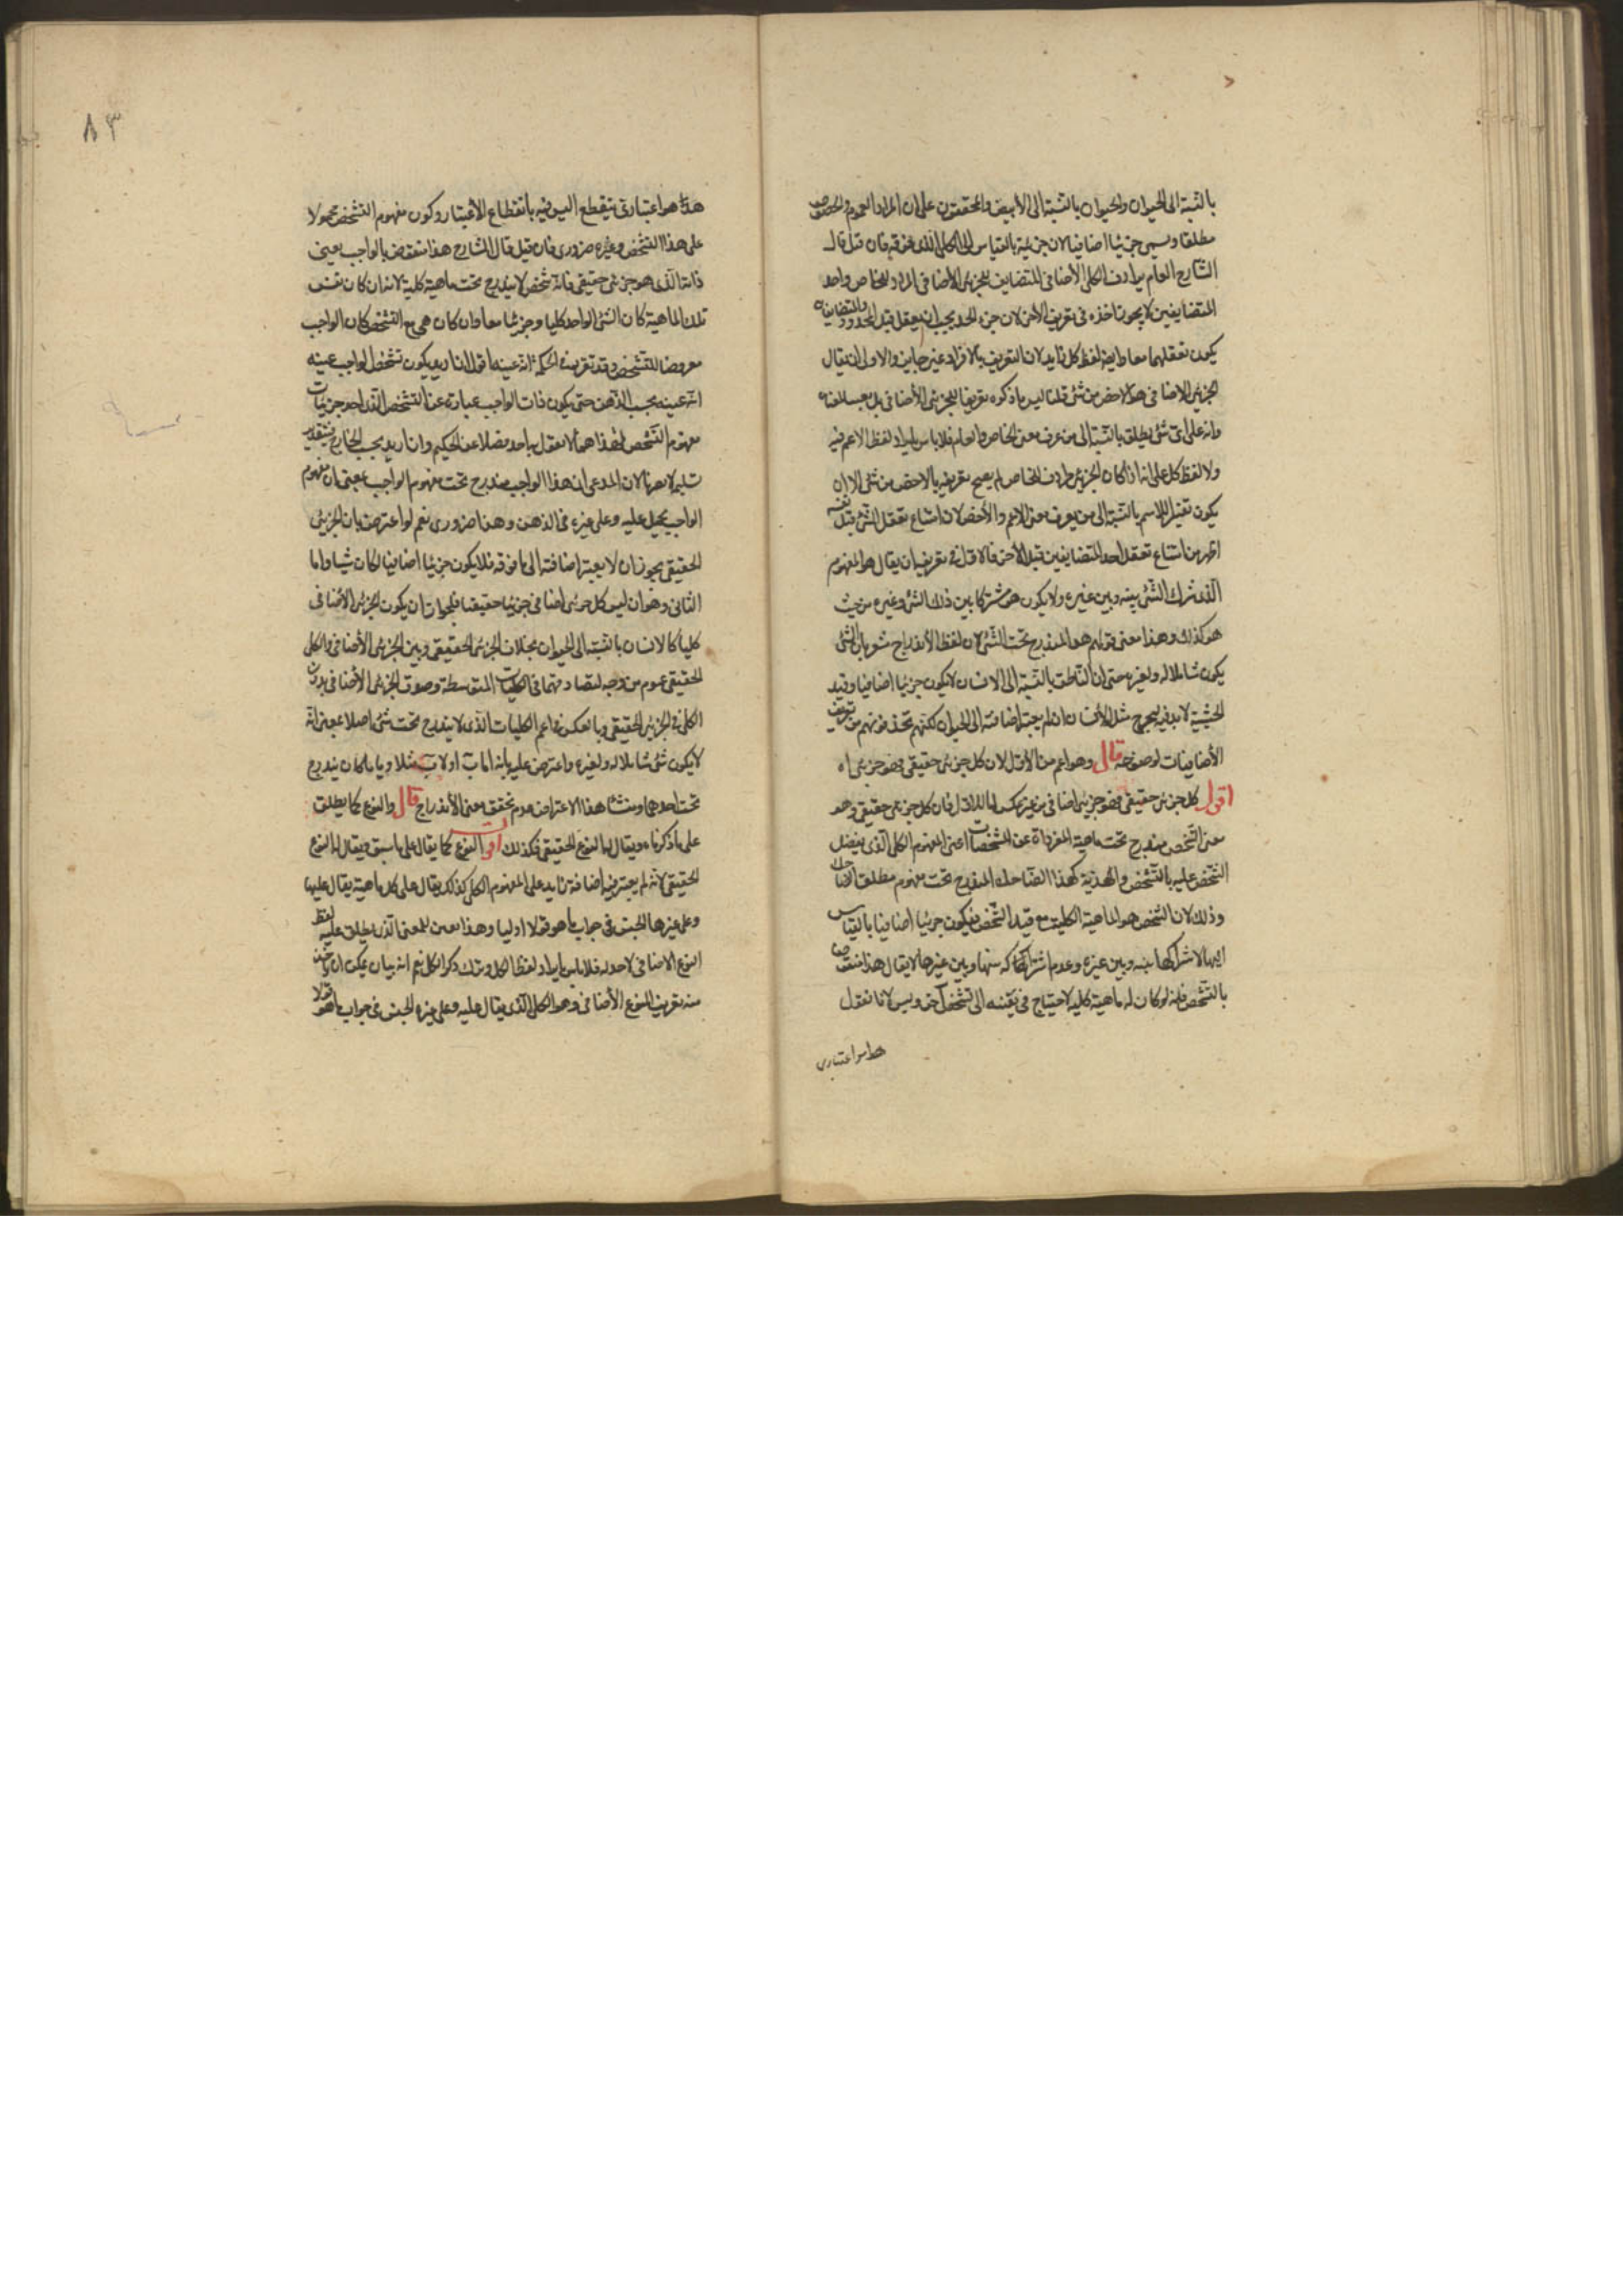 بالنسبة الى الحيوان والحيوان بالنسبة الى الأبيض والمحققون على ان المراد العموم والخصوص
مطلقا ويسمى جزئيا اضافيا لان جزئيته بالقياس الى الكلى الذى فوقه فان قيل قال
الشارح العام يرادف الكلى الأضافى المتضايف للجزئى الأضافى المرادف للخاص واحد
المتضايفين لا يجوز اخذه فى تعريف الأخر لان جزء الحد يجب ان يعقل قبل المحدود والمتضايفان
يكون تعقلهما معا وايضا لفظ كل زايد لان التعريف بالافراد غير جايز والاولى ان يقال
الجزئى الاضافى هو الاخص من شئ قلنا ليس ما ذكره تعريفا للجزئى الأضافى بل
وانه على اى شئ يطلق بالنسبة الى من عرف معنى الخاص والعام فلا باس بايراد لفظ الاعم فيه
ولا لفظ كل على انه اذا كان الجزئى مرادف الخاص لم يصح تعريفه بالاخص من شئ الا ان
يكون تفسيرا للاسم بالنسبة الى من يعرف معنى الاعم والأخص لان امتناع تعقل الشئ قبل نفسه
اظهر من امتناع تعقل احد المتضايفين قبل الأخر فالاولى فى تعريفه ان يقال هو المفهوم
الذى شرك الشئ بينه وبين غيره ولا يكون هو مشتركا بين ذلك الشئ وغيره من حيث
هو كذلك وهذا معنى قولهم هو المندرج تحت الشئ لان لفظ الأندراج مشعر بان الشئ
يكون شاملا له ولغيره حتى ان الناطق بالنسبة الى الانسان لا يكون جزئيا اضافيا وقيد
الحيثية لا بد فيه ليخرج مثل الأنسان ان لم يعتبر اضافته الى الحيوان لكنهم يحذفونهم من تعريف
الأضافيات لوضوحه قال وهو اعم من الأول لان كل جزئى حقيقى فهو جزئى اه
اقول كل جزئى حقيقى فهو جزئى اضافى من غير عكس اما الاول فلان كل جزئى حقيقى وهو
معنى الشخص مندرج تحت ماهية المعراة عن المشخصات اعنى المفهوم الكلى الذى يفضل
الشخص عليه بالتشخص والهذية كهذا الضاحك المندرج تحت مفهوم مطلق الضاحك
وذلك لان الشخص هو الماهية الكلية مع قيد التشخص فيكون جزئيا اضافيا بالقياس
اليها لاشتراكها بينه وبين غيره وعدم اشتراكه بينها وبين غيرها لا يقال هذا منقوض
بالتشخص فانه لو كان له ماهية كلية لاحتياج فى تعينه الى تشخص آخر ويس لانا نقول
هذا هو اعتبارى
هذا هو اعتبارى ينقطع اليس فيه بانقطاع الأعتبار وكون مفهوم التشخص محمولا
على هذا التشخص وغيره ضرورى فان قيل قال الشارح هذا منقوض بالواجب يعنى
ذاته الذى هو جزئى حقيقى فانه شخص لا يندرج تحت ماهية كلية لانه ان كان نفس
تلك الماهية كان الشئ الواحد كليا وجزئيا معا وان كان هى مع التشخص كان الواجب
معروضا للتشخص وقد تقرر فى الحكمة انه عينه اقول ان اريد بكون تشخص الواجب عينه
انه عينه بحسب الذهن حتى يكون ذات الواجب عبارة عن التشخص الذى احد جزئيات
مفهوم التشخص فهذا مما لا يقول به احد فضلا عن الحكيم وان اريد بحسب الخارج فبتقدير
تسليمه لا يضرنا لان المدعى ان هذا الواجب مندرج تحت مفهوم الواجب بمعنى ان مفهوم
الواجب يحمل عليه وعلى غيره فى الذهن وهذا ضرورى نعم لو اعترض بان الجزئى
الحقيقى يجوز ان لا يعتبر اضافته الى ما فوقه فلا يكون جزئيا اضافيا لكان شيئا واما
الثانى وهو ان ليس كل جزئى اضافى جزئيا حقيقيا فلجواز ان يكون الجزئى الأضافى
كليا كالانسان بالنسبة الى الحيوان بخلاف الجزئى الحقيقى وبين الجزئى الأضافى والكلى
الحقيقى عموم من وجه لتصادقهما فى الكليات المتوسطة وصدق الجزئى الأضافى بدون
الكلى فى الجزئى الحقيقى وبالعكس فى اعم الكليات الذى لا يندرج تحت شئ اصلا بمعنى انه
لا يكون شئ شاملا له ولغيره واعترض عليه بانه اما ب او لا ب مثلا وايا ما كان يندرج
تحت احدهما ومنشا هذا الاعتراض عدم تحقق معنى الأندراج قال والنوع كما يطلق
على ما ذكرناه ويقال له النوع الحقيقى فكذلك اه اقول النوع كما يقال على ما سبق ويقال له النوع
الحقيقى لانه لم يعتبر فيه اضافة زايد على المفهوم الكلى كذلك يقال على كل ماهية يقال عليها
وعلى غيرها الجنس فى جواب ما هو قولا اوليا وهذا تعيين للمعنى الذى يطلق عليه لفظ
النوع الاضافى لاحد له فلا باس بايراد لفظ الكل وترك ذكر الكلى نعم انه بيان يمكن ان يؤخذ
منه تعريف للنوع الأضافى وهو الكلى الذى يقال عليه وعلى غيره الجنس فى جواب ما هو قولا
٨٣